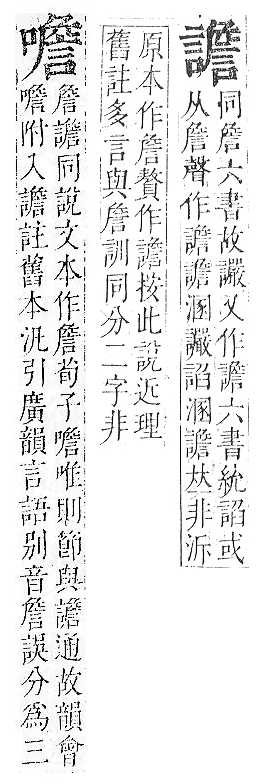 譫
同詹六書故讝又作譫六書統詔或
从詹聲作譫譫溷讝詔溷譫𠀤非泝
原本作詹贅作譫按此説近理
舊註多言與詹訓同分二字非
噡
詹譫同説文本作詹荀子噡唯則節與譫通故韻會
噡附入譫註舊本汎引廣韻言語别音詹誤分爲三